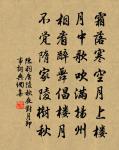 霜落寒空月上樓
月中歌吹滿揚州
相看醉舞倡樓月
不覺隋家陵樹秋
陳羽廣陵秋夜對月即
事詞典網集